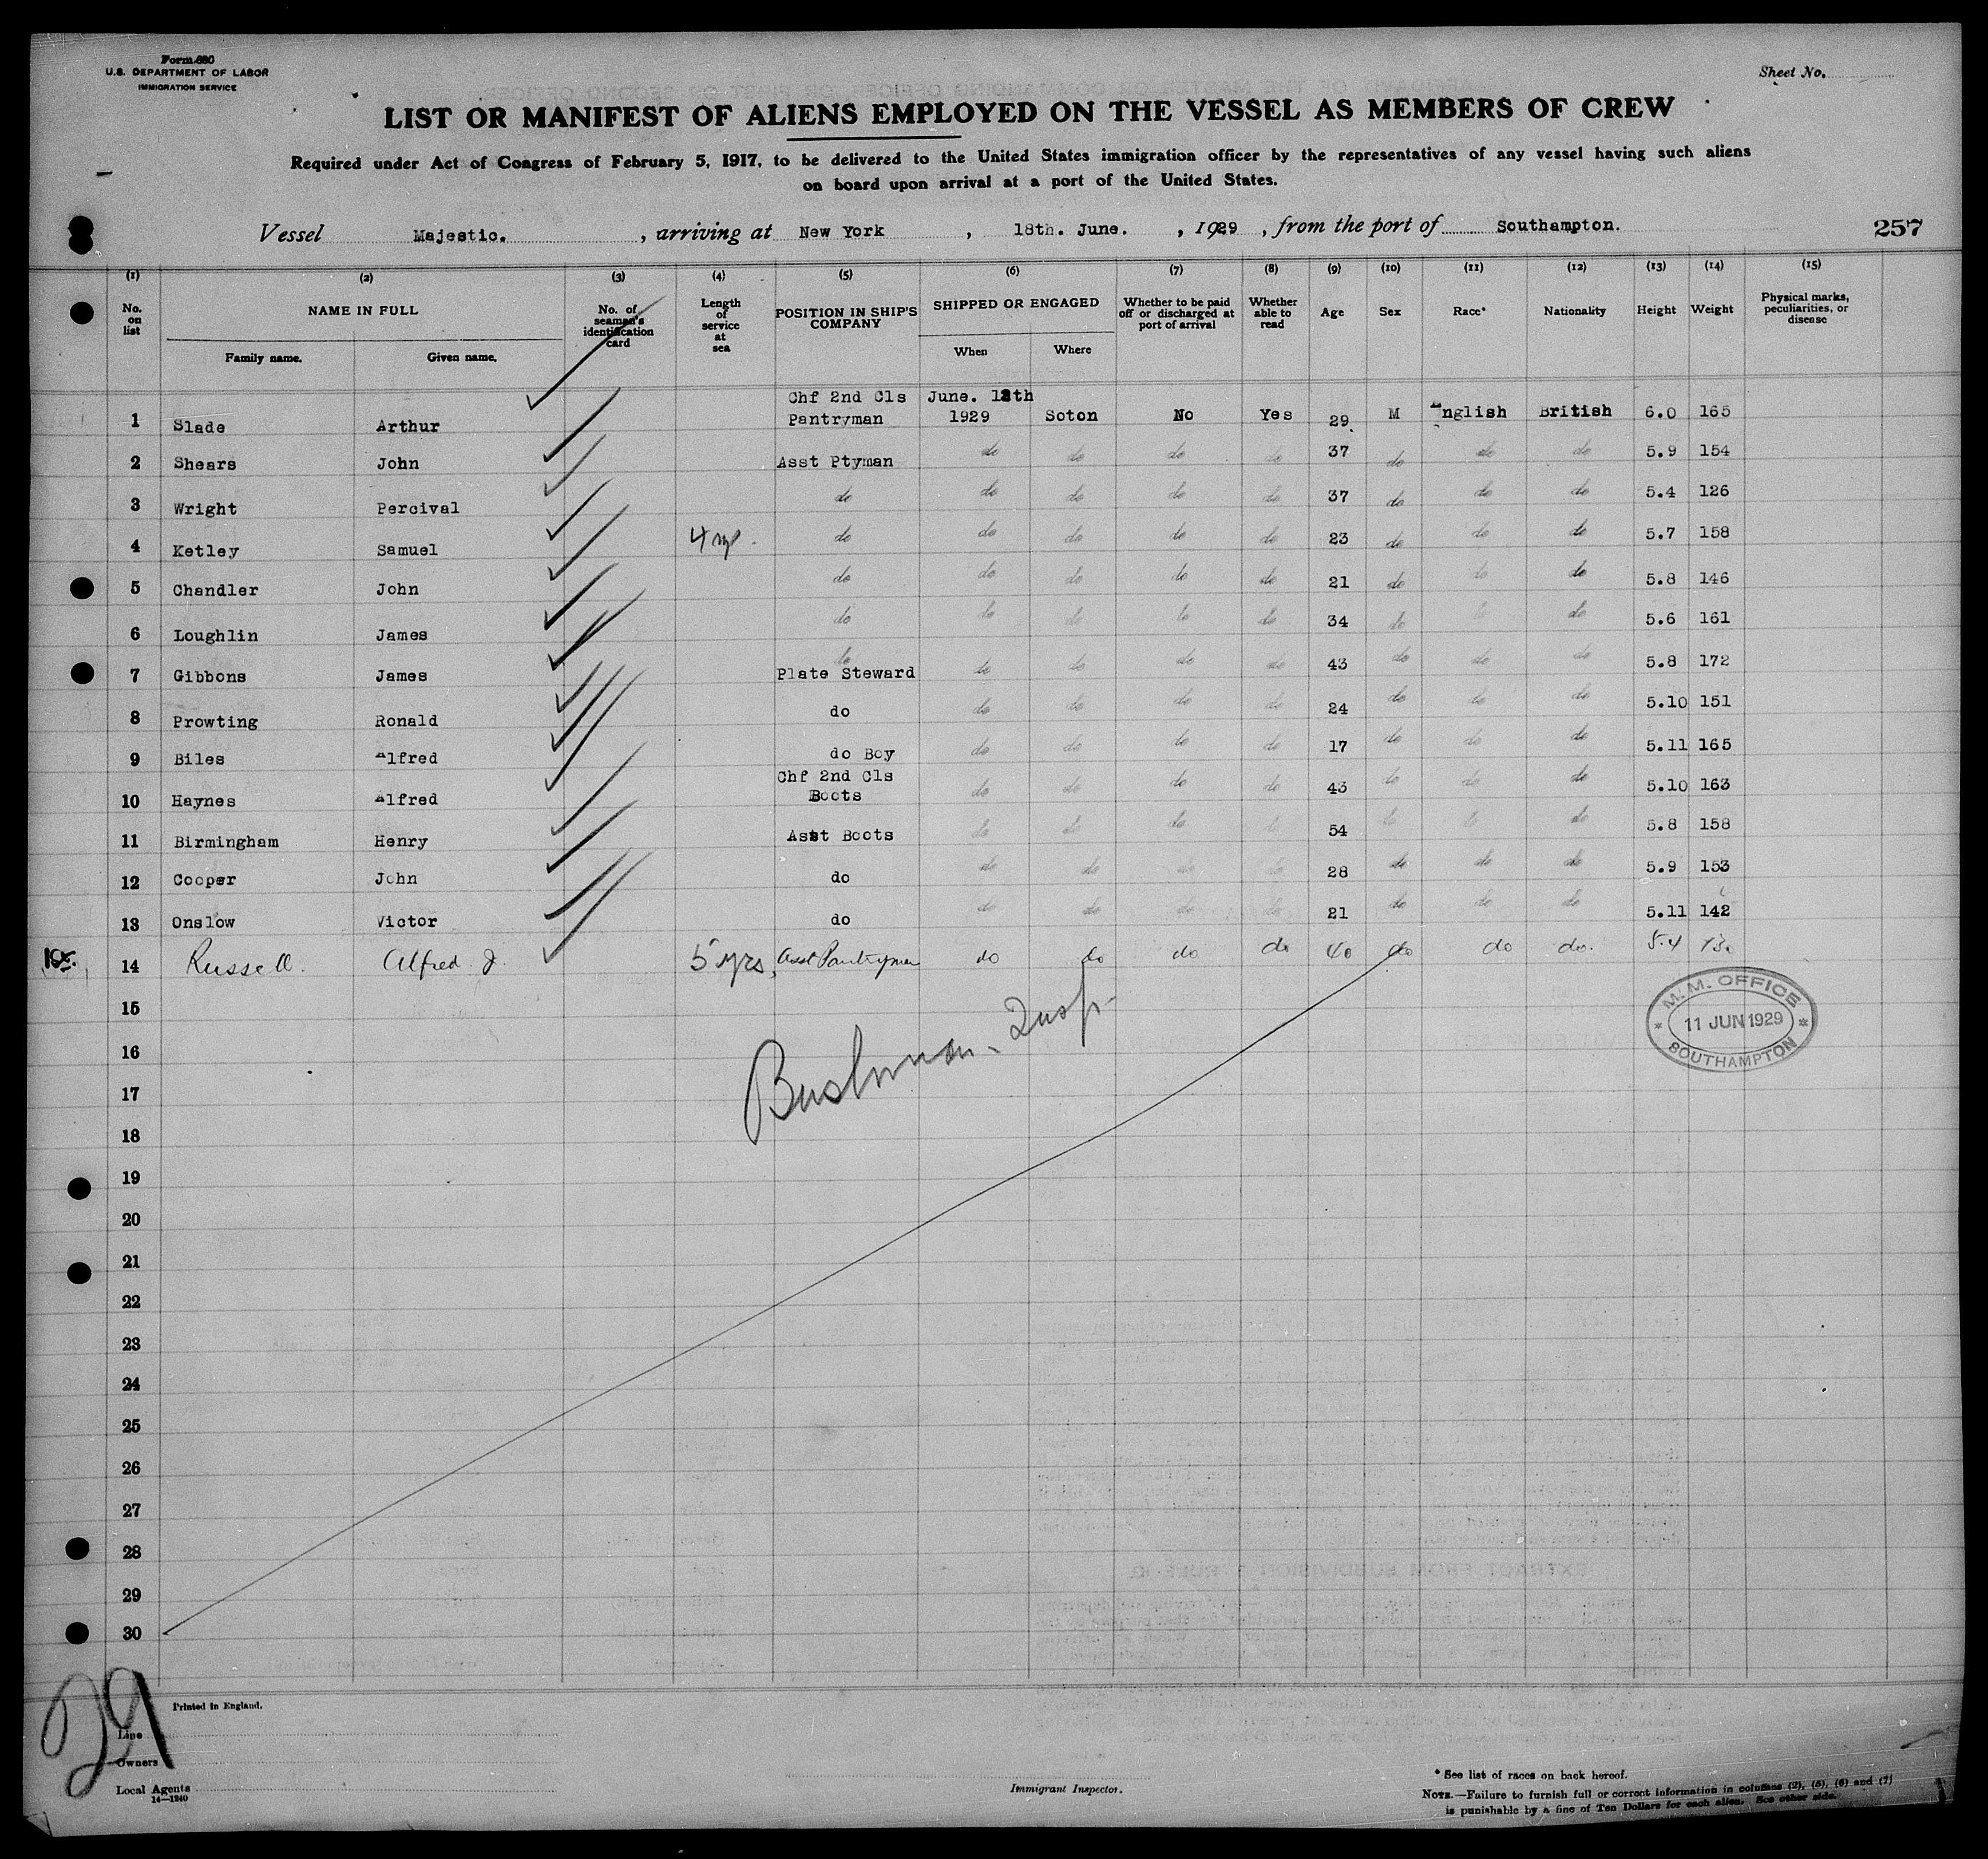 Form 680
U.S. DEPARTMENT OF LABOR
IMMIGRATION SERVICE
Sheet No.
LIST OR MANIFEST OF ALIENS EMPLOYED ON THE VESSEL AS MEMBERS OF CREW
Required under Act of Congress of February 5, 1917, to be delivered to the United States immigration officer by the representatives of any vessel having such aliens
on board upon arrival at a port of the United States.
Vessel Majestic. , arriving at New York , 18th. June. , 1929 , from the port of Southampton. 257
(1) (2) (3) (4) (5) (6) (7) (8) (9) (10) (11) (12) (13) (14) (15)
No. on list NAME IN FULL Family name. Given name. No. of seaman's identification card Length of service at sea POSITION IN SHIP'S COMPANY SHIPPED OR ENGAGED When Where Whether to be paid off or discharged at port of arrival Whether able to read Age Sex Race* Nationality Height Weight Physical marks, peculiarities, or disease
1 Slade Arthur Chf 2nd Cls Pantryman June. 12th 1929 Soton No Yes 29 M English British 6.0 165
2 Shears John Asst Ptyman do do do do 37 do do do 5.9 154
3 Wright Percival do do do do do 37 do do do 5.4 126
4 Ketley Samuel do do do do do 23 do do do 5.7 158
5 Chandler John do do do do do 21 do do do 5.8 146
6 Loughlin James do do do do do 34 do do 5.6 161
7 Gibbons James do Plate Steward do do do do 43 do do do 5.8 172
8 Prowting Ronald do do do do do 24 do do do 5.10 151
9 Biles Alfred do Boy do do do do 17 do do do 5.11 165
10 Haynes Alfred Chf 2nd Cls Boots do do do do 43 do do do 5.10 163
11 Birmingham Henry Asst Boots do do do do 54 do do do 5.8 158
12 Cooper John do do do do do 28 do do do 5.9 153
13 Onslow Victor do do do do do 21 do do do 5.11 142
14 Russell Alfred J. 5 yrs, Asst Pantryman do do do do 40 do do do. 5.4 130
15
16
17
18
19
20
21
22
23
24
25
26
27
28
29
30
M.M. OFFICE
11 JUN 1929
SOUTHAMPTON
29
Printed in England.
Line
Owners
Local Agents
14—1240
Immigrant Inspector.
* See list of races on back hereof.
NOTE.—Failure to furnish full or correct information in columns (2), (5), (6) and (7)
is punishable by a fine of Ten Dollars for each alien. See other side.